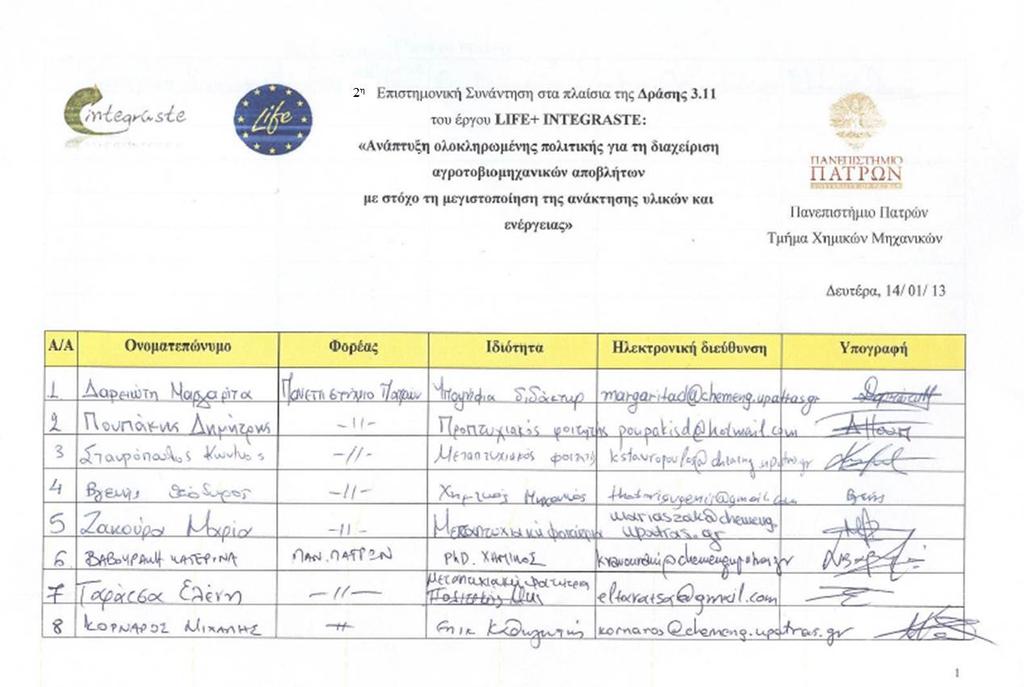 integraste
Life
2η Επιστημονική Συνάντηση στα πλαίσια της Δράσης 3.11
του έργου LIFE+ INTEGRASTE:
«Ανάπτυξη ολοκληρωμένης πολιτικής για τη διαχείριση
αγροτοβιομηχανικών αποβλήτων
με στόχο τη μεγιστοποίηση της ανάκτησης υλικών και
ενέργειας»
ΠΑΝΕΠΙΣΤΗΜΙΟ
ΠΑΤΡΩΝ
UNIVERSITY OF PATRAS
Πανεπιστήμιο Πατρών
Τμήμα Χημικών Μηχανικών
Δευτέρα, 14/ 01/ 13
Α/Α Ονοματεπώνυμο Φορέας Ιδιότητα Ηλεκτρονική διεύθυνση Υπογραφή
1 Δαρειώτη Μαργαρίτα Πανεπιστήμιο Πατρών Υποψήφια διδάκτωρ margaritad@chemeng.upatras.gr
2 Πουπάκης Δημήτρης -||- Προπτυχιακός φοιτητής poupakisd@hotmail.com
3 Σταυρόπουλος Κων/νος -//- Μεταπτυχιακός φοιτητής kstavropoulos@chemeng.upatras.gr
4 Βγενής Θεόδωρος -||- Χημικός Μηχανικός @gmail.com Βγενής
5 Ζακούρα Μαρία -||- Μεταπτυχιακή φοιτήτρια mariaszak@chemeng.
upatras.gr
6 ΒΑΒΟΥΡΑΚΗ ΚΑΤΕΡΙΝΑ ΠΑΝ. ΠΑΤΡΩΝ PhD. ΧΗΜΙΚΟΣ
7 Ταράτσα Ελένη -||- Μεταπτυχιακή φοιτήτρια eltaratsa@gmail.com
8 ΚΟΡΝΑΡΟΣ ΜΙΧΑΛΗΣ -||- Επικ. Καθηγητής kornaros@chemeng.upatras.gr
1